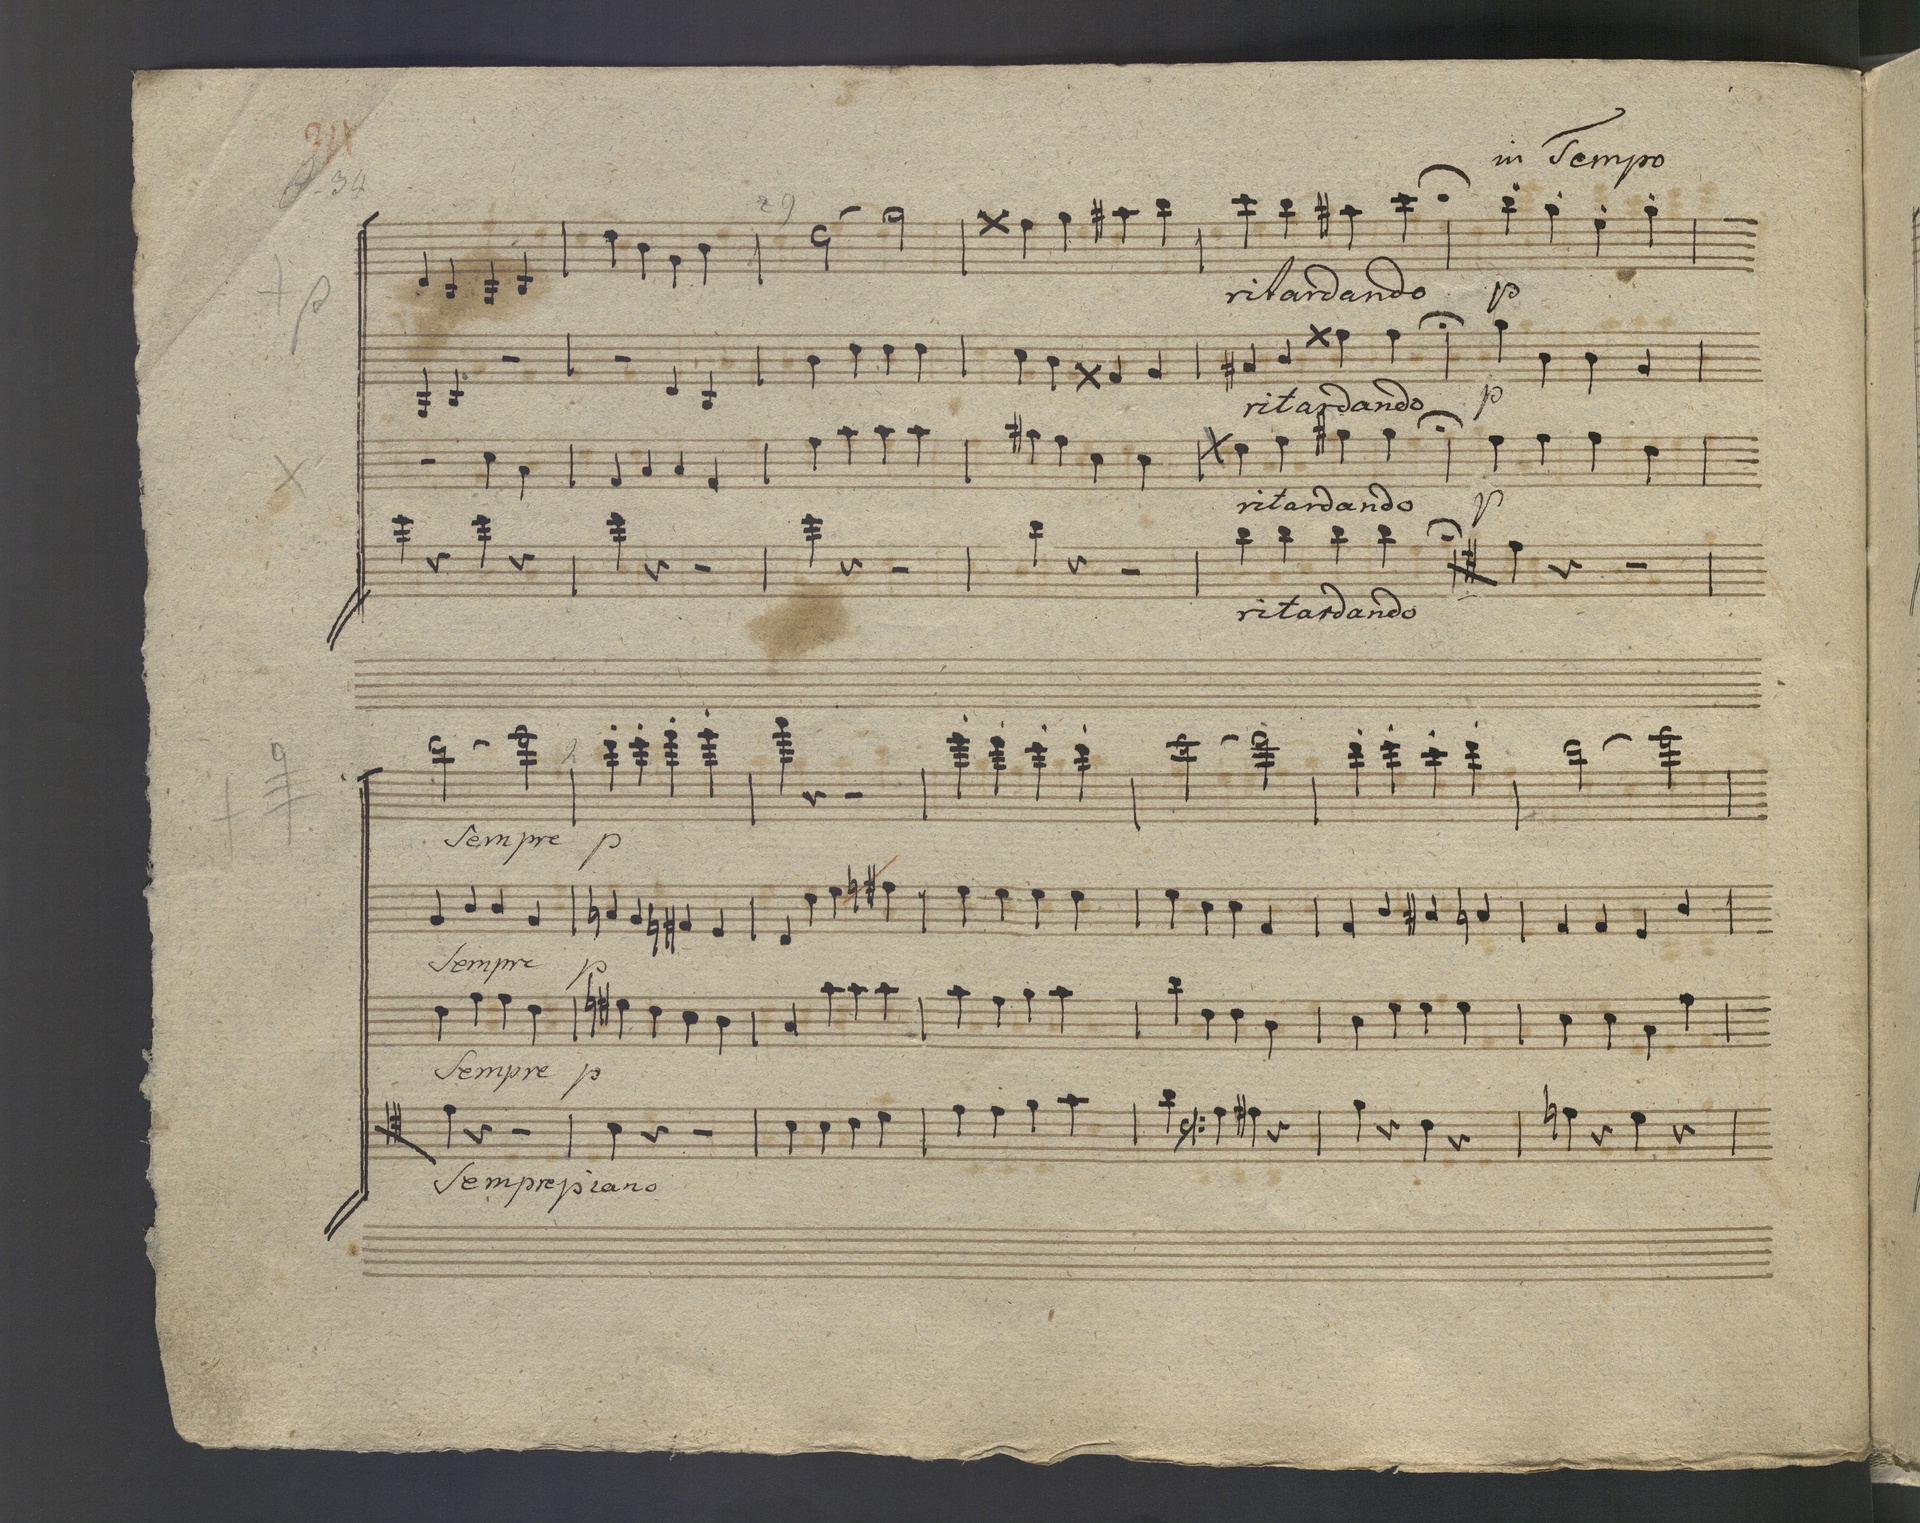 in Tempo
ritardando p
ritardando p
ritardando p
ritardando
Sempre p
Sempre p
Sempre p
Semprepiano